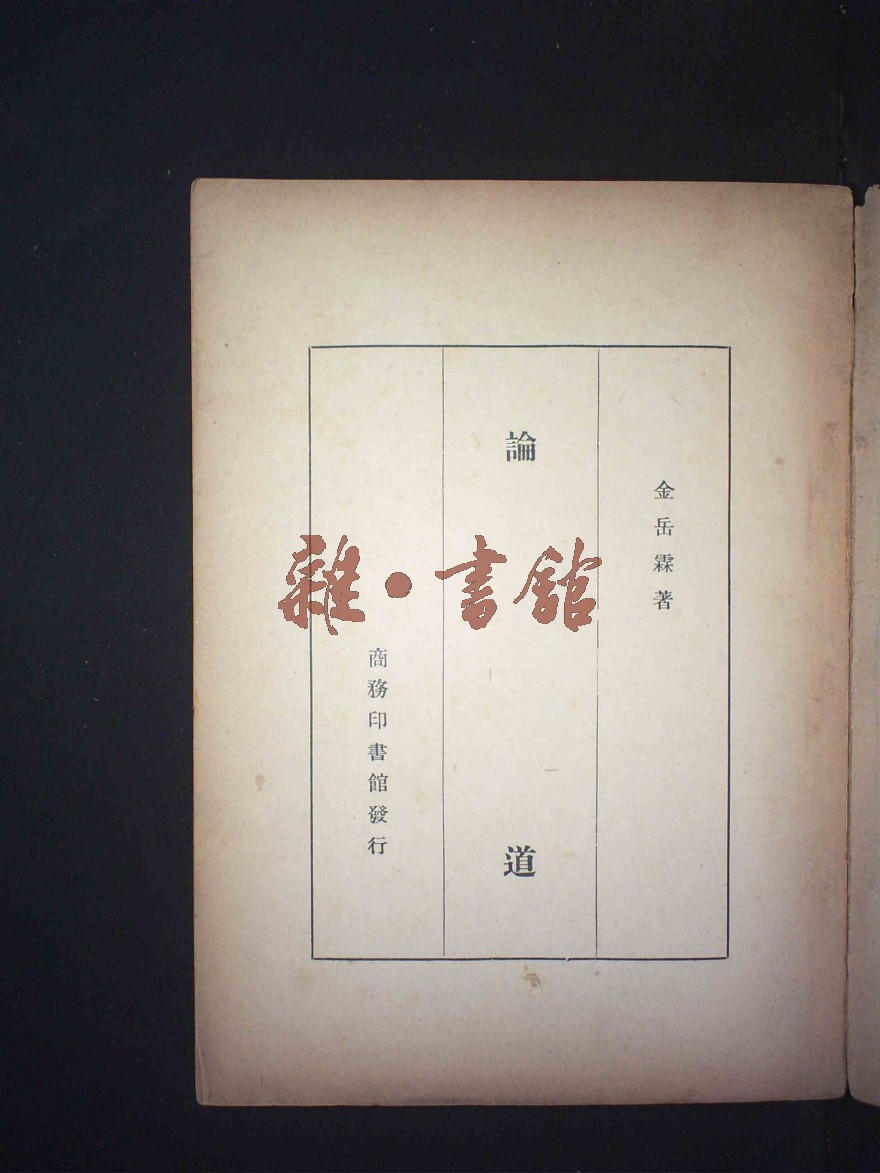 金岳霖著
論道
商務印書館發行
雜·書館